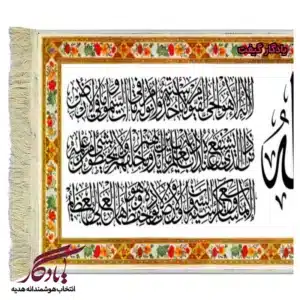 یادگار گیفت
الله لا إله إلا هو الحي القيوم لا تأخذه سنة ولا نوم له ما في السماوات وما في الأرض
من ذا الذي يشفع عنده إلا بإذنه يعلم ما بين أيديهم وما خلفهم ولا يحيطون بشيء من علمه
إلا بما شاء وسع كرسيه السماوات والأرض ولا يؤده حفظهما وهو العلي العظيم
یادگار
انتخاب هوشمندانه هدیه